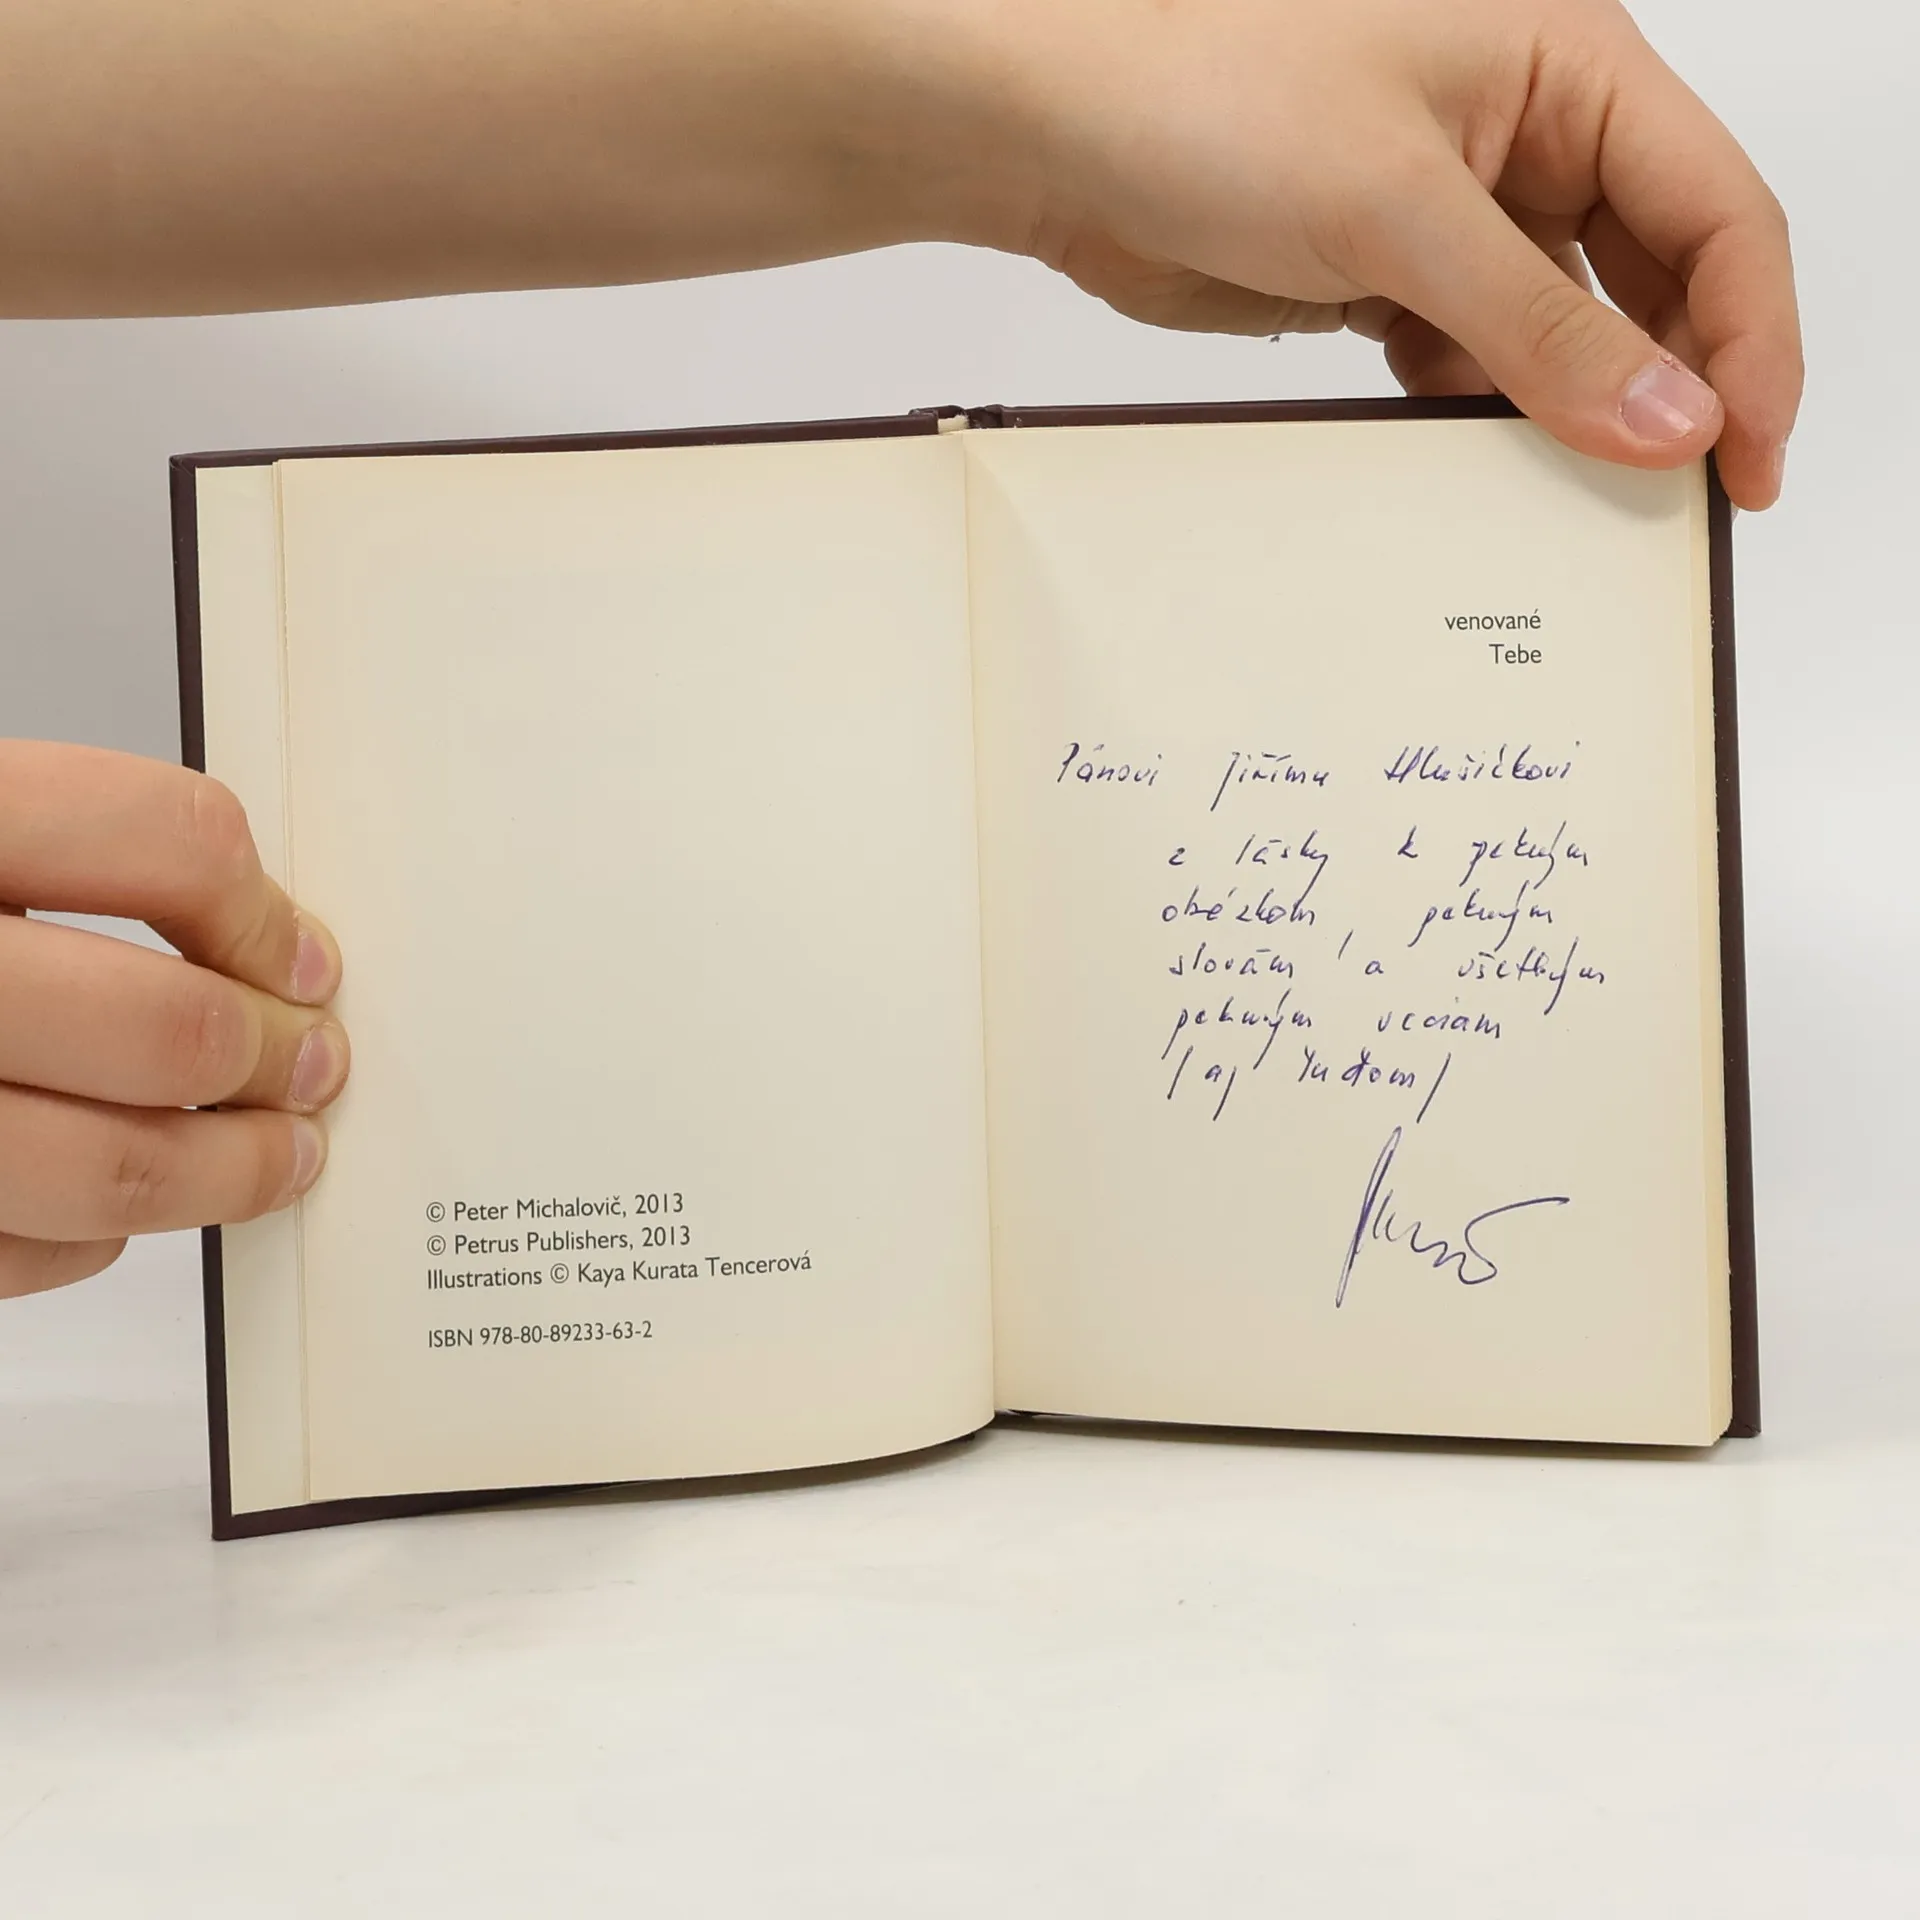 © Peter Michalovič, 2013
© Petrus Publishers, 2013
Illustrations © Kaya Kurata Tencerová
ISBN 978-80-89233-63-2
venované
Tebe
Pánovi Jiřímu Hlušičkovi
z lásky k pekným
obrázkom, pekným
slovám a všetkým
pekným veciam
/aj ľuďom/